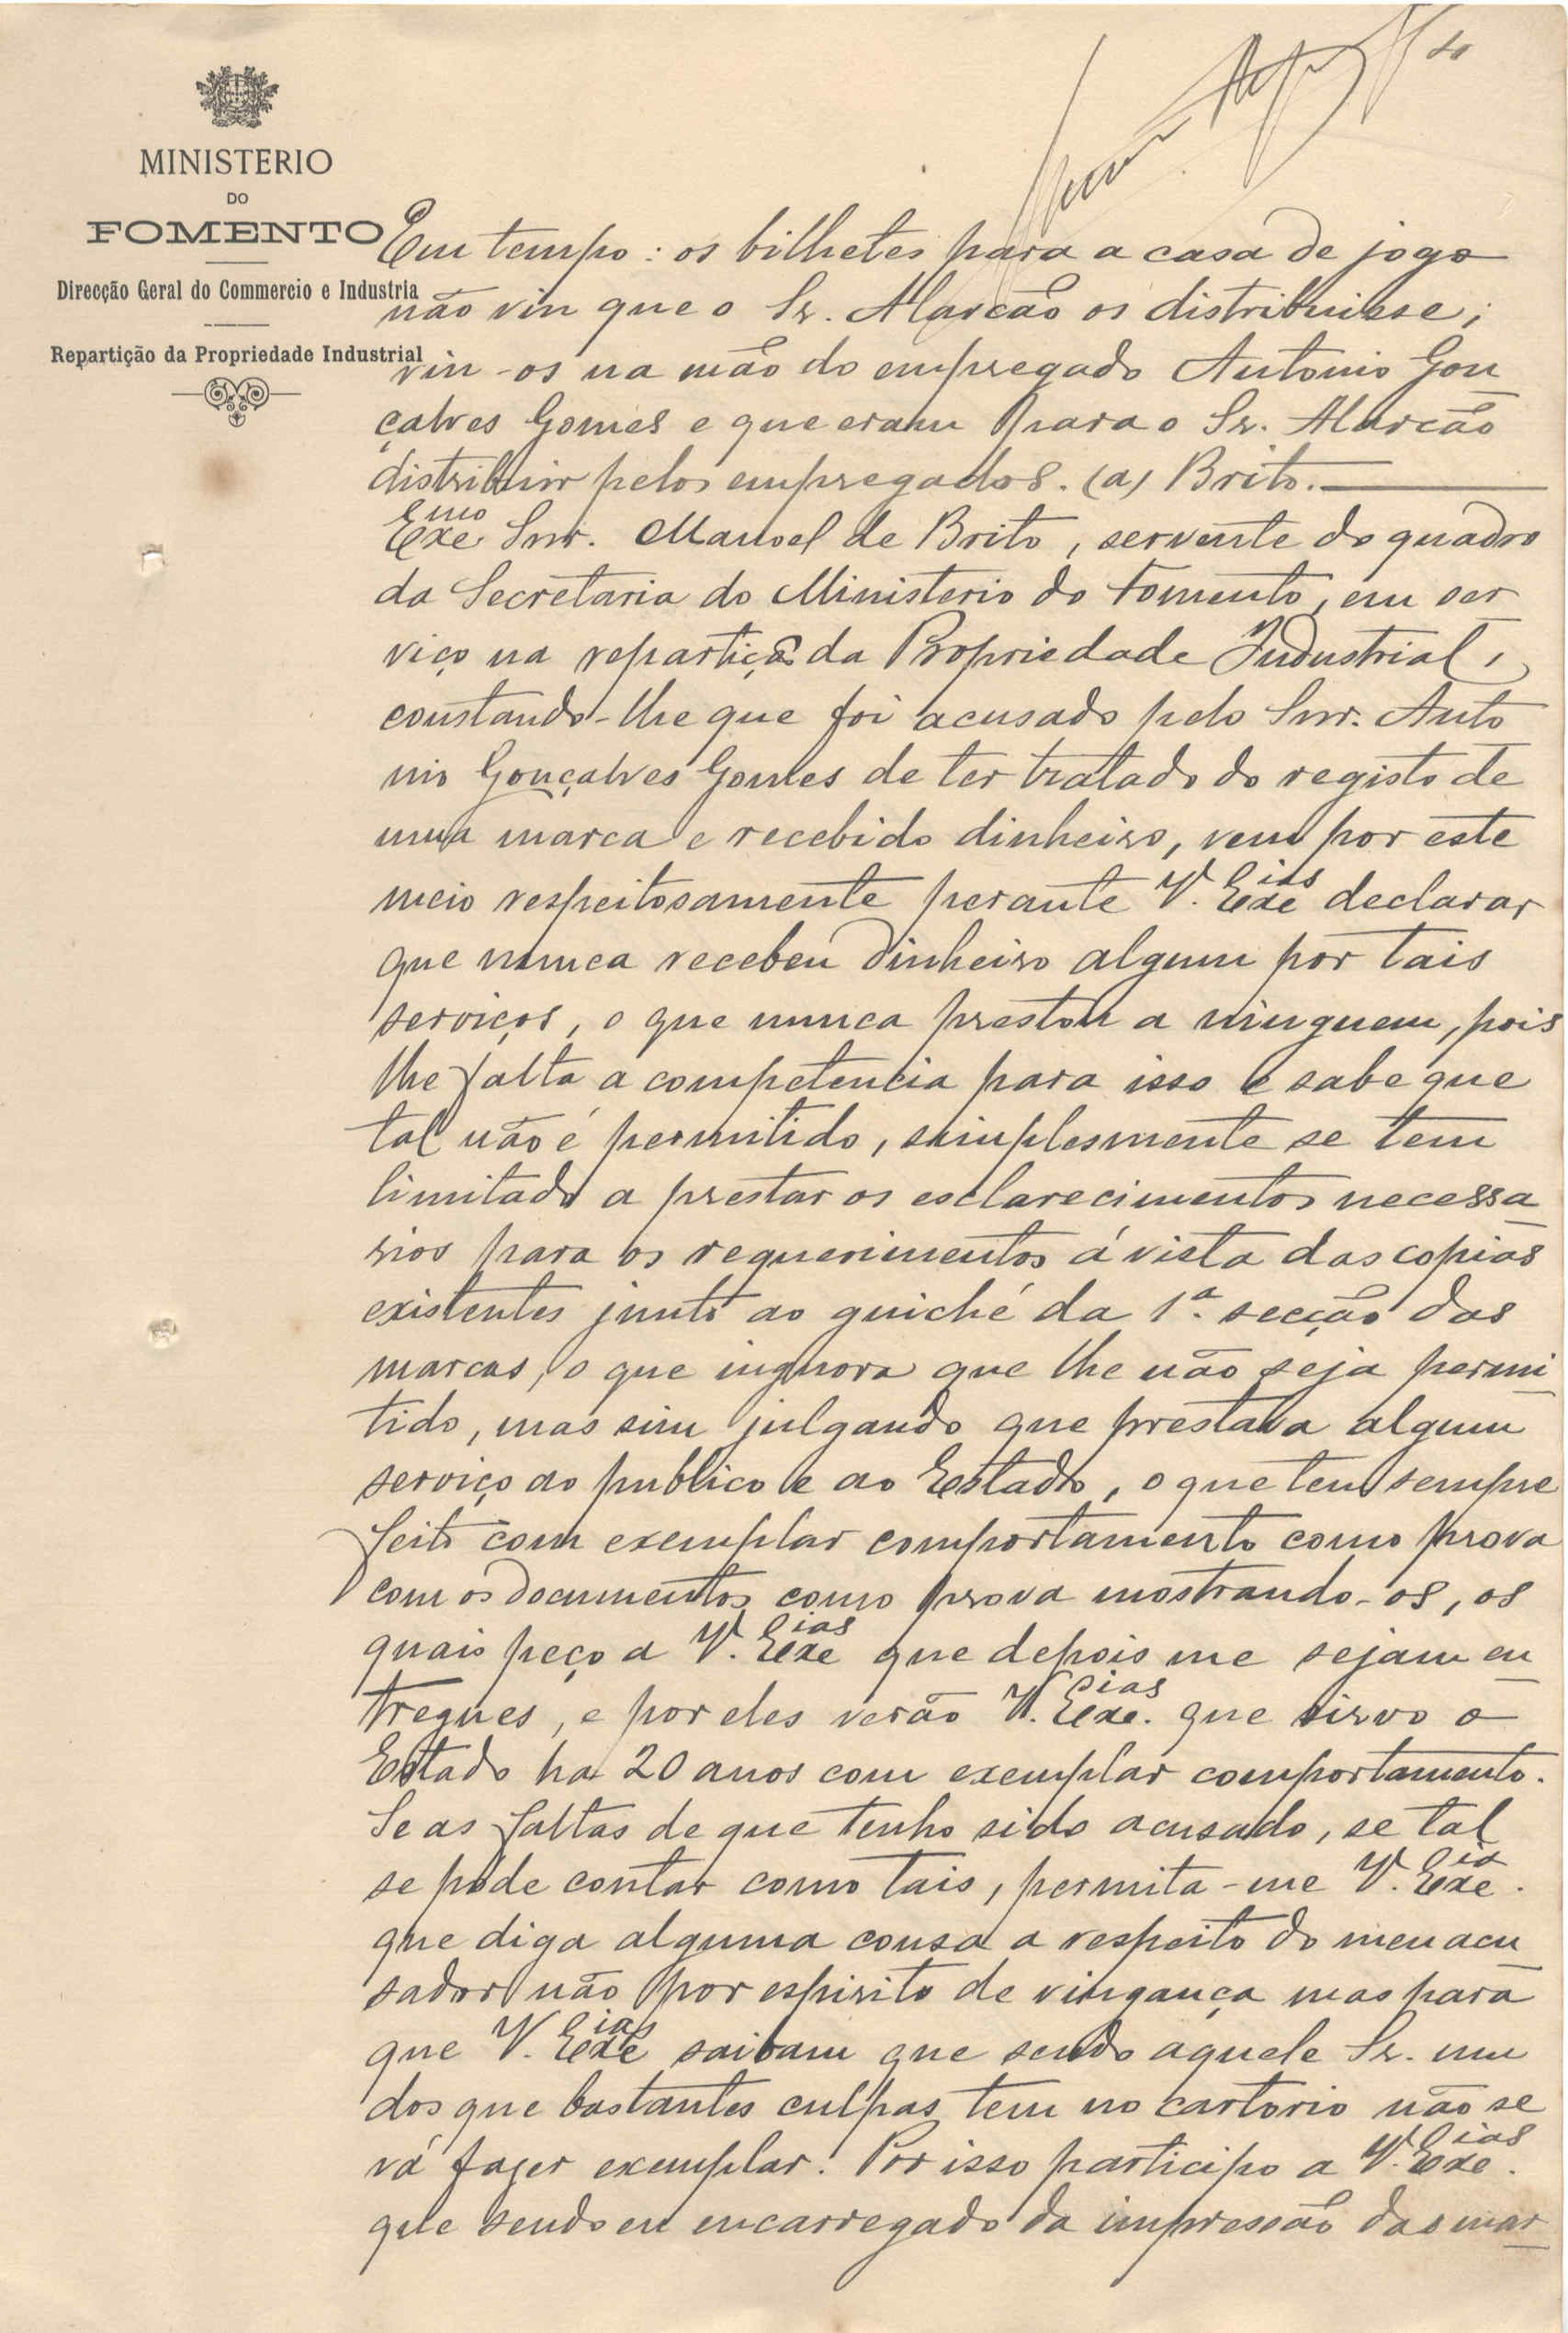 MINISTERIO
DO
FOMENTO
Direcção Geral do Commercio e Industria
Repartição da Propriedade Industrial
Em tempo: os bilhetes para a casa de jogo
não vin que o Sr. Alarcão os distribuisse;
vin-os na mão do empregado Antonio Gon
çalves Gomes e que eram para o Sr. Alarcão
distribuir pelos empregados. (a) Brito.
Exemo Snr. Manoel de Brito, servente do quadro
da Secretaria do Ministerio do Fomento, em ser
viço na repartição da Propriedade Industrial,
constando-lhe que foi acusado pelo Snr. Anto
nio Gonçalves Gomes de ter tratado do registo de
uma marca e recebido dinheiro, vem por este
meio respeitosamente perante V. Exeias declarar
que nunca recebeu dinheiro algum por tais
serviços, o que nunca prestou a ninguem, pois
lhe falta a competencia para isso e sabe que
tal não é permitido, simplesmente se tem
limitado a prestar os esclarecimentos necessa
rios para os requerimentos á vista das copias
existentes junto ao guiché da 1ª secção das
marcas, o que ingnora que lhe não seja permi
tido, mas sim julgando que prestava algum
serviço ao publico e ao Estado, o que tem sempre
feito com exemplar comportamento como prova
com os documentos como prova mostrando-os, os
quais peço a V. Exeias que depois me sejam en
tregues, e por eles verão V. Exeias. que sirvo o
Estado ha 20 anos com exemplar comportamento.
Se as faltas de que tenho sido acusado, se tal
se póde contar como tais, permita-me V. Exeia.
que diga alguma cousa a respeito do meu acu
sador não por espirito de vingança mas para
que V. Exeias saibam que sendo aquele Sr. um
dos que bastantes culpas tem no cartorio não se
vá fazer exemplar. Por isso participo a V. Exeias.
que sendo eu encarregado da impressão das mar